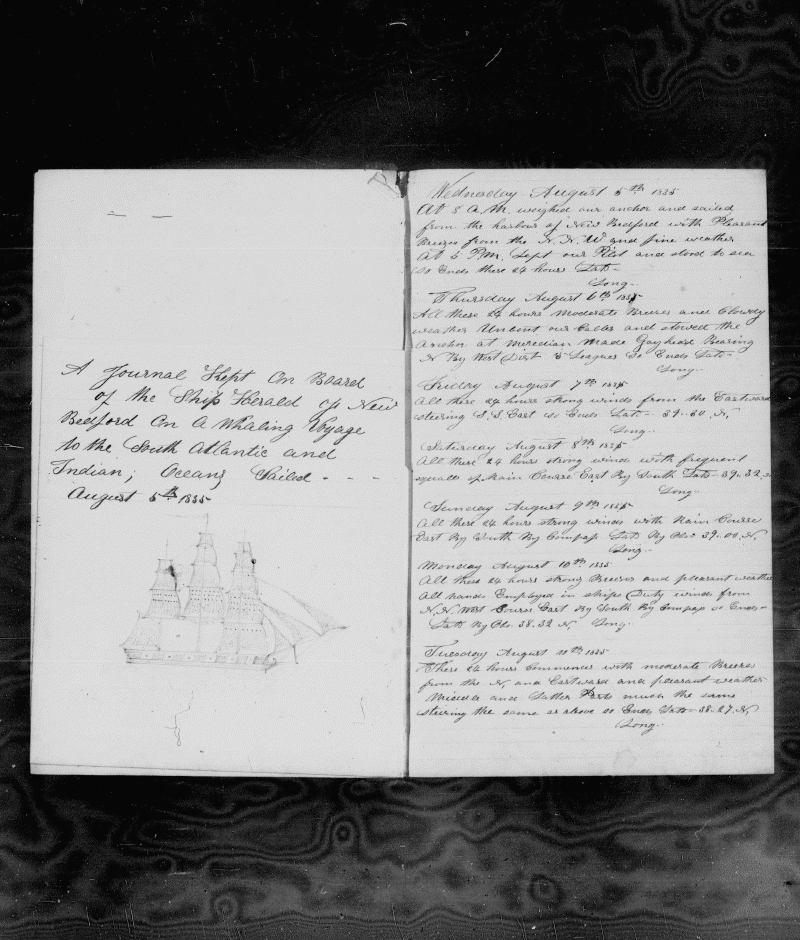 A Journal Kept On Board
of the Ship Herald of New
Bedford On A Whaling Voyage
to the South Atlantic and
Indian; Oceans Sailed - - -
August 5th 1835
Wednesday August 5th 1835
At 8 A.M. weighed our anchor and sailed
from the harbour of New Bedford with Pleasant
Breezes from the N.N.W and fine weather
At 5 P.M. Left our Pilot and stood to sea
So Ends these 24 hours Lat-
Long-
Thursday August 6th 1835
All these 24 hours Moderate Breezes and Clowdy
weather Unbent our Cables and stowed the
Anchor at Meredian Made Gayhead Bearing
N By West Dist 5 Leagues So Ends Lat-
Long-
Friday August 7th 1835
All these 24 hours strong winds from the Eastward
steering S.S. East so Ends Lat- 39..30 N,
Long-
Saturday August 8th 1835
All these 24 hours strong winds with frequent
squales of Rain Course East By South Lat- 39..32
Long-
Sunday August 9th 1835
All these 24 hours strong winds with Rain Course
East By South By Compass Lat- By Obs- 39..00 N,
Long-
Monday August 10th 1835
All these 24 hours strong Breezes and pleasant weather
All hands Employed in ships Duty winds from
N.N. West Course East By South By Compass so Ends-
Lat- By Obs. 38.32 N, Long-
Tuesday August 11th 1835
These 24 hours Commences with moderate Breezes
from the N, and Eastward and pleasant weather
Middle and Latter Parts much the same
steering the same as above so Ends Lat- 38..27 N,
Long-